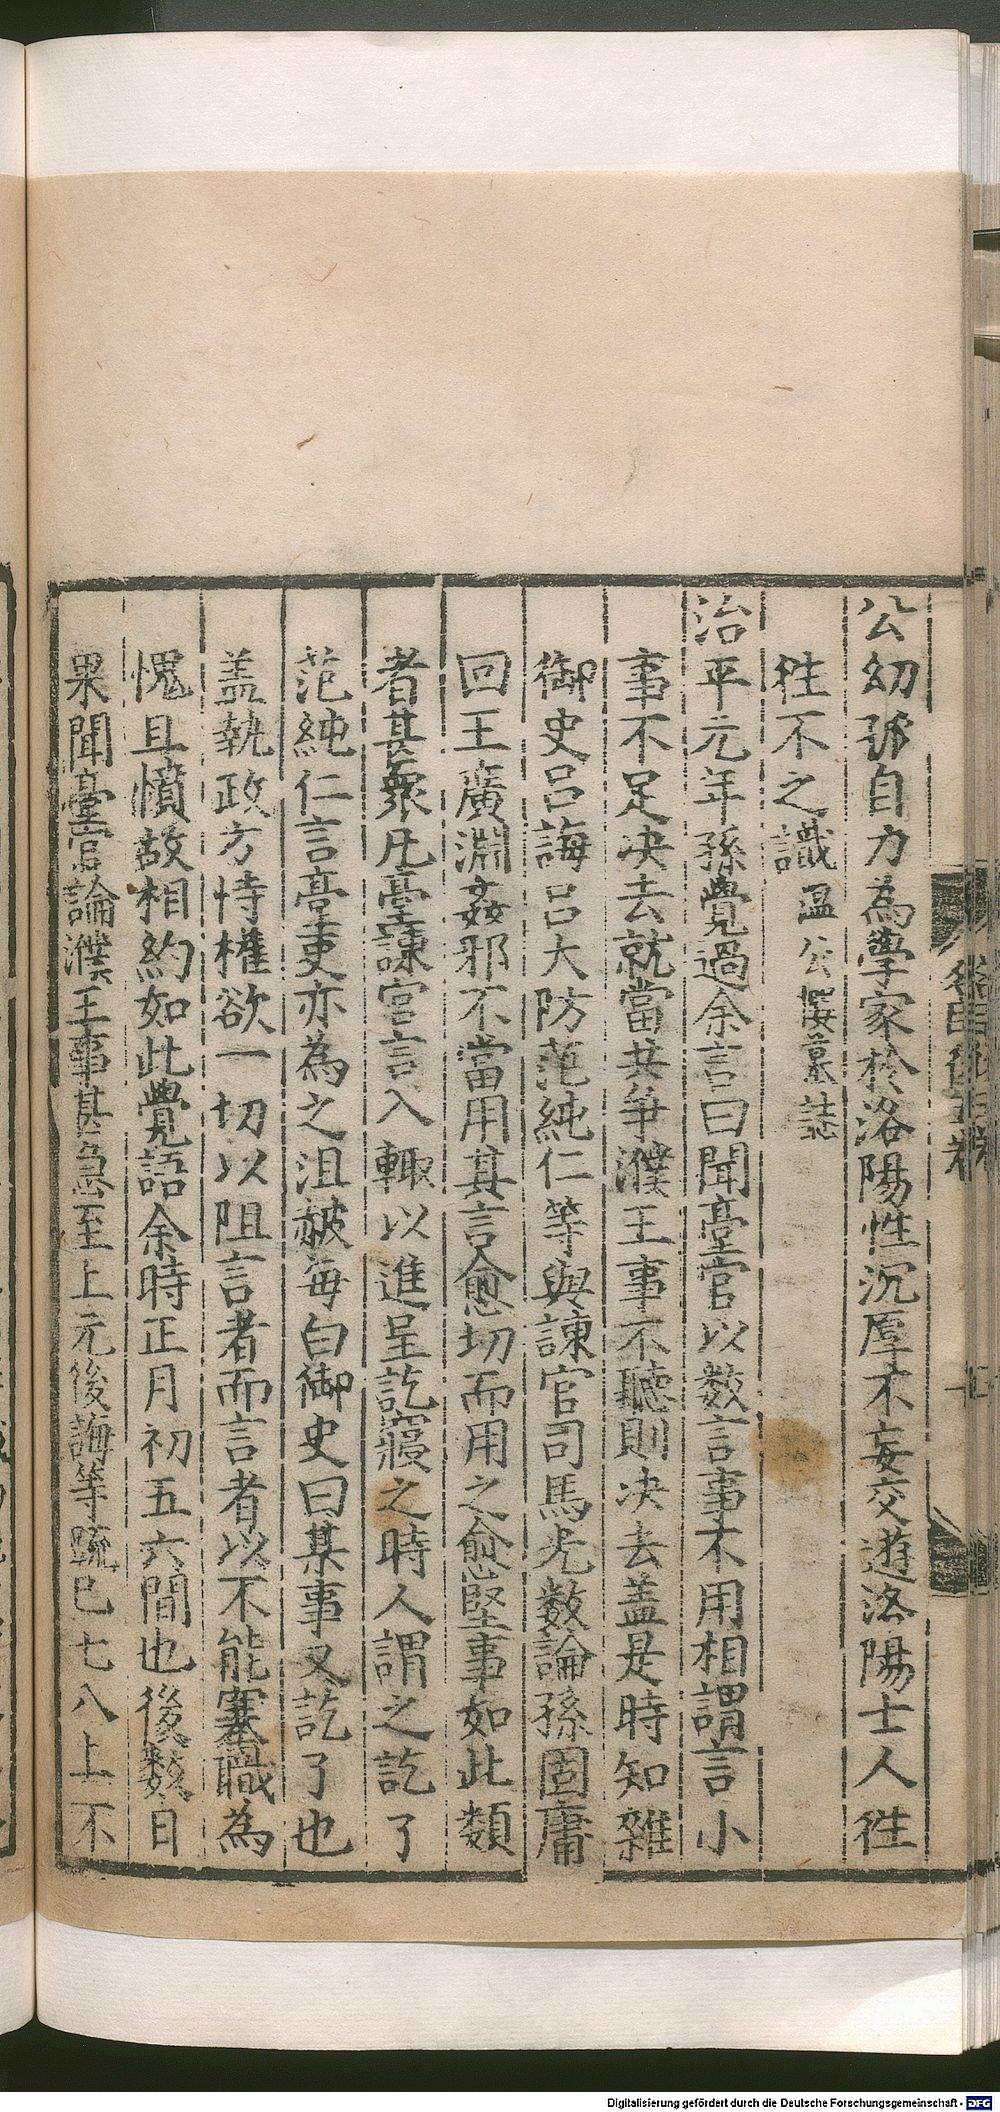 公幼孤自力為學家於洛陽性沉厚不妄交遊洛陽士人徃
徃不之識温公撰墓誌
治平元年孫覺過余言曰聞臺官以數言事不用相謂言小
事不足决去就當共爭濮王事不聽則决去盖是時知雜
御史吕誨吕大防范純仁等與諫官司馬光數論孫固庸
回王廣淵姦邪不當用其言愈切而用之愈堅事如此類
者甚衆凡臺諫官言入輙以進呈訖寢之時人謂之訖了
范純仁言臺吏亦為之沮赧每白御史曰某事又訖了也
盖執政方恃權欲一切以阻言者而言者以不能塞職為
愧且憤故相約如此覺語余時正月初五六間也後数日
果聞臺官論濮王事甚急至上元後誨等疏已七八上不
Digitalisierung gefördert durch die Deutsche Forschungsgemeinschaft - DFG